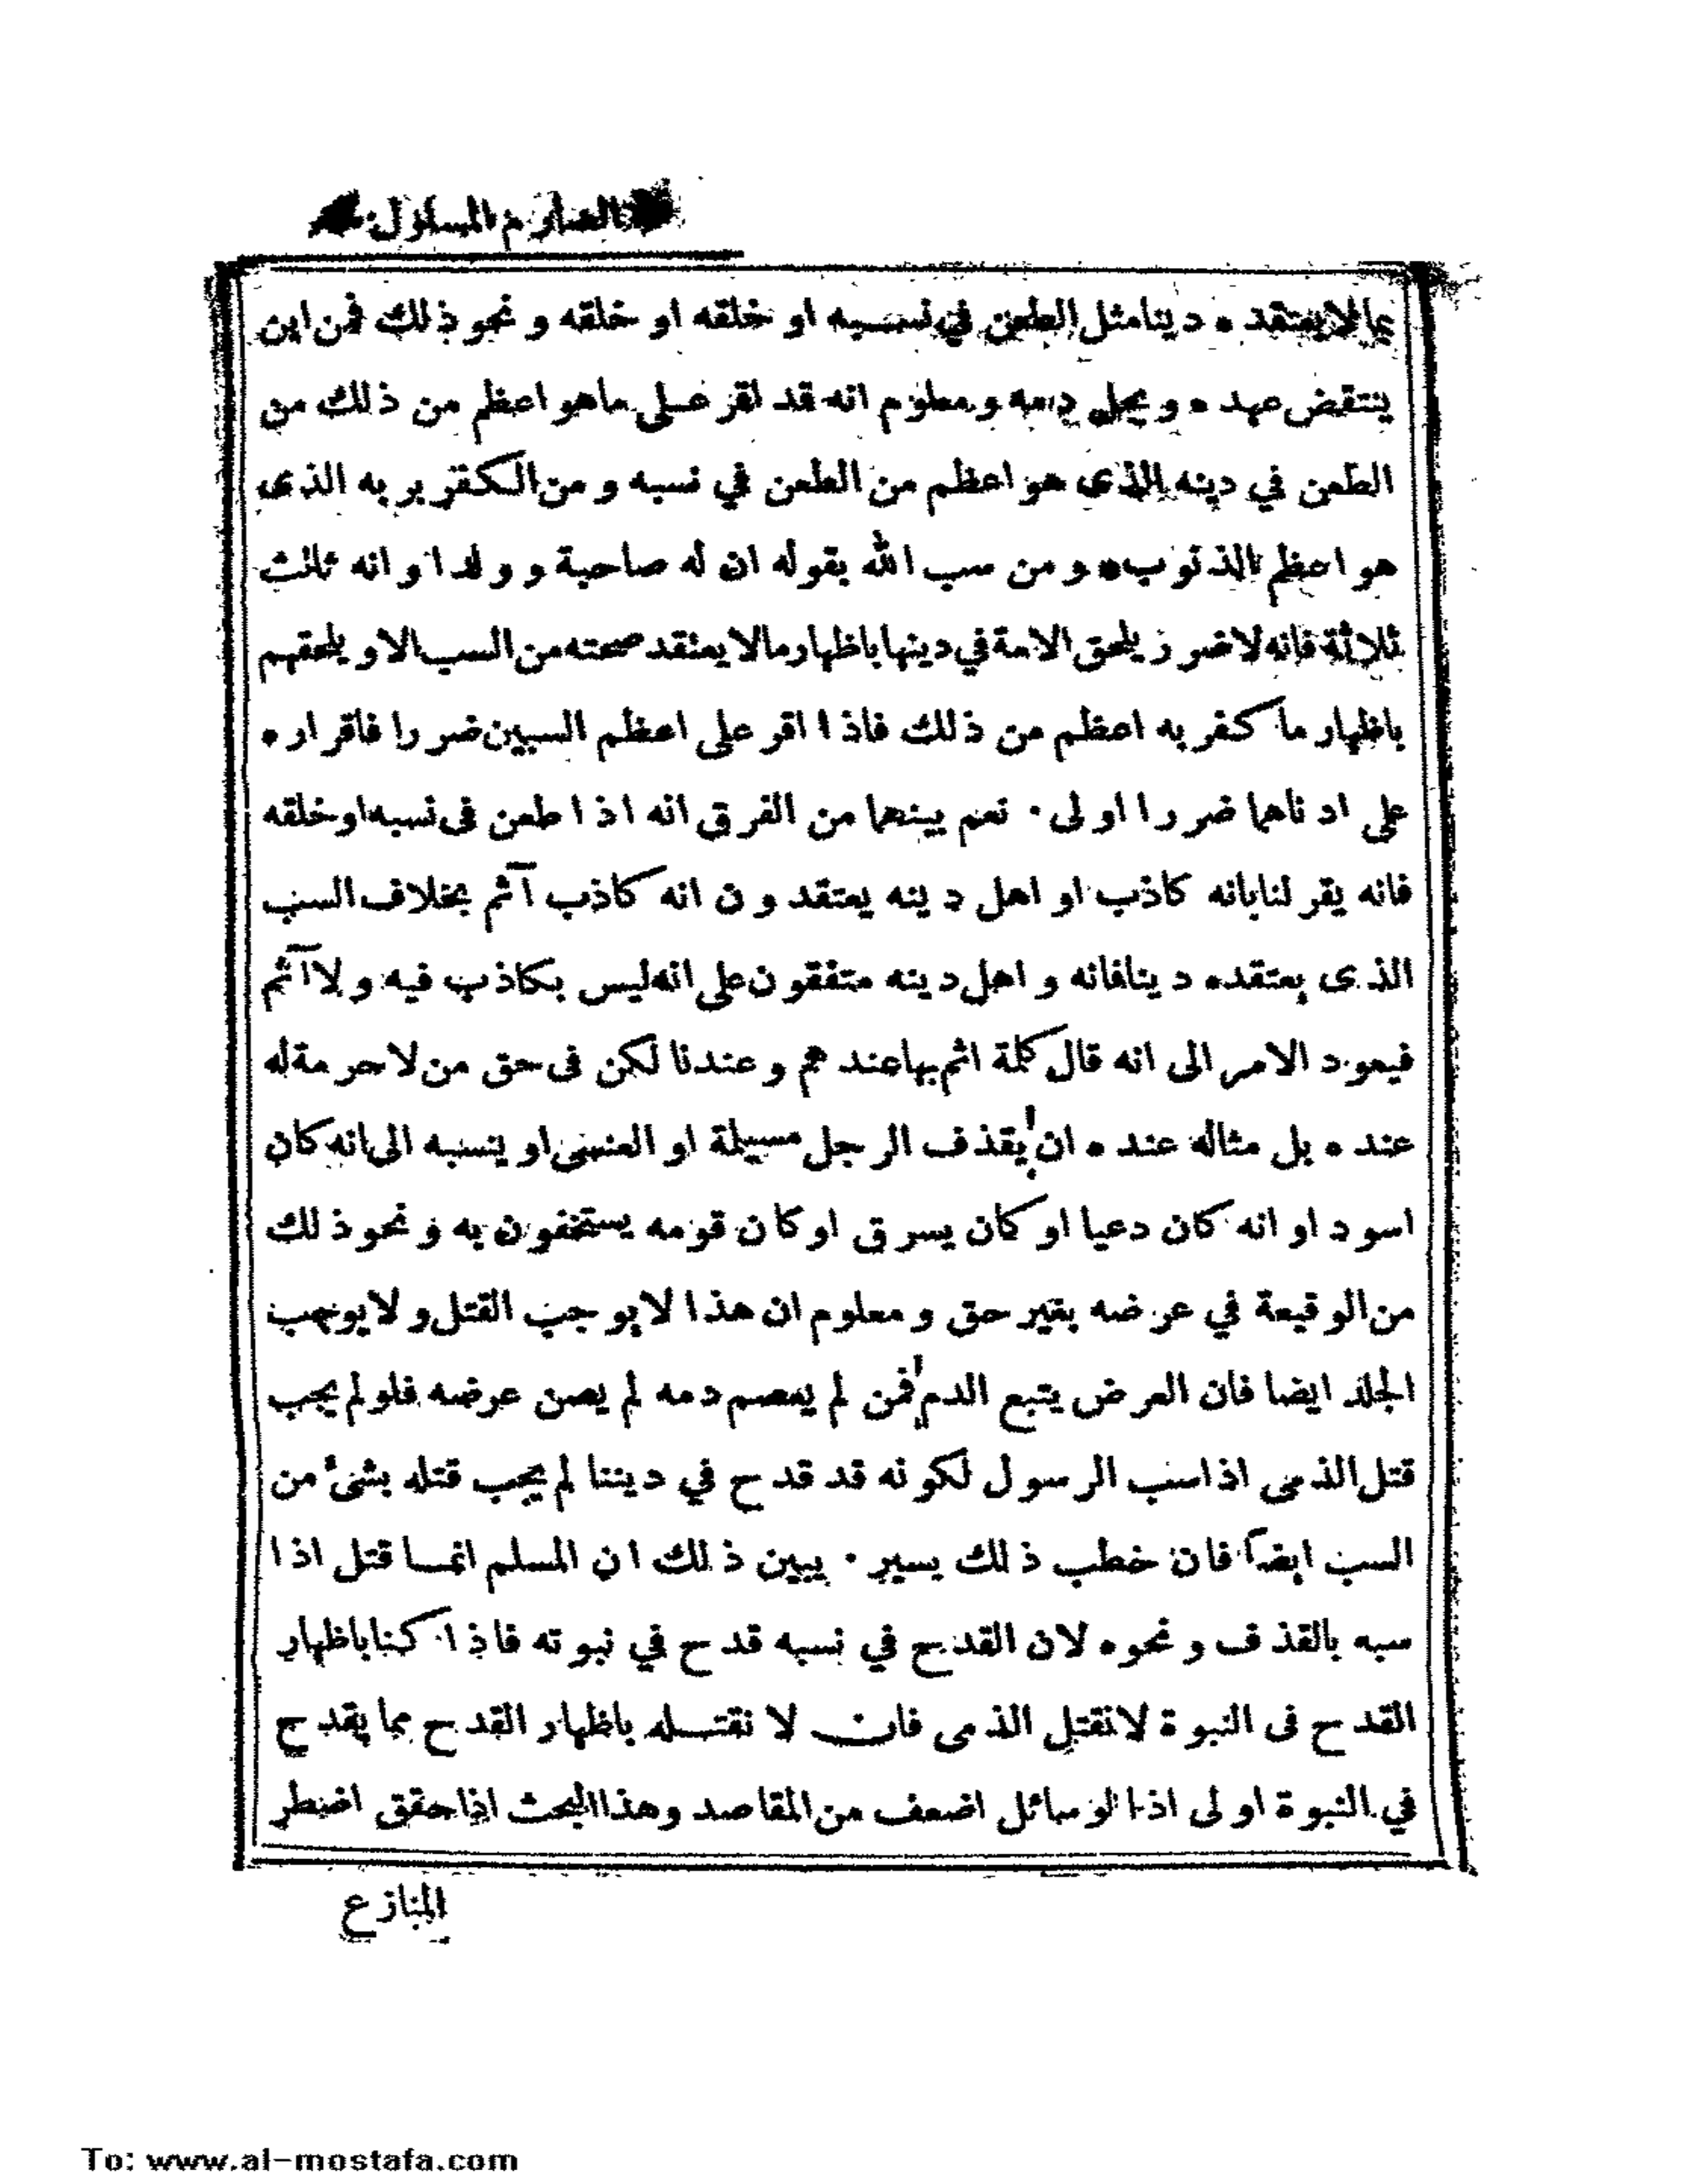 الصارم المسلول
بما لا يعتقده دينا مثل الطعن في نسبه او خلقه او خلقه و نحو ذلك فمن اين
ينتقض عهده و يحل دمه و معلوم انه قد اقر على ما هو اعظم من ذلك من
الطعن في دينه الذى هو اعظم من الطعن في نسبه و من الكفر بربه الذى
هو اعظم الذنوب و من سب الله بقوله ان له صاحبة و ولدا و انه ثالث
ثلاثة فانه لا ضرر يلحق الامة في دينها باظهار ما لا يعتقد صحته من السب الا و يلحقهم
باظهار ما كفر به اعظم من ذلك فاذا اقر على اعظم السبين ضررا فاقراره
على ادناهما ضررا اولى ٠ نعم بينهما من الفرق انه اذا طعن فى نسبه او خلقه
فانه يقر لنا بانه كاذب او اهل دينه يعتقدون انه كاذب آثم بخلاف السب
الذى يعتقده دينا فانه و اهل دينه متفقون على انه ليس بكاذب فيه و لا آثم
فيعود الامر الى انه قال كلمة اثم بها عندهم و عندنا لكن فى حق من لا حرمة له
عنده بل مثاله عنده ان يقذف الرجل مسيلمة او العنسى او ينسبه الى انه كان
اسود او انه كان دعيا او كان يسرق او كان قومه يستخفون به و نحو ذلك
من الوقيعة في عرضه بغير حق و معلوم ان هذا لا يوجب القتل و لا يوجب
الجلد ايضا فان العرض يتبع الدم فمن لم يعصم دمه لم يصن عرضه فلو لم يجب
قتل الذمى اذا سب الرسول لكونه قد قدح في ديننا لم يجب قتله بشئ من
السب ايضا فان خطب ذلك يسير ٠ يبين ذلك ان المسلم انما قتل اذا
سبه بالقذف و نحوه لان القدح في نسبه قدح في نبوته فاذا كنا باظهار
القدح فى النبوة لا نقتل الذمى فان لا نقتله باظهار القدح مما يقدح
في النبوة اولى اذا الوسائل اضعف من المقاصد وهذا البحث اذا حقق اضطر
المنازع
To: www.al-mostafa.com